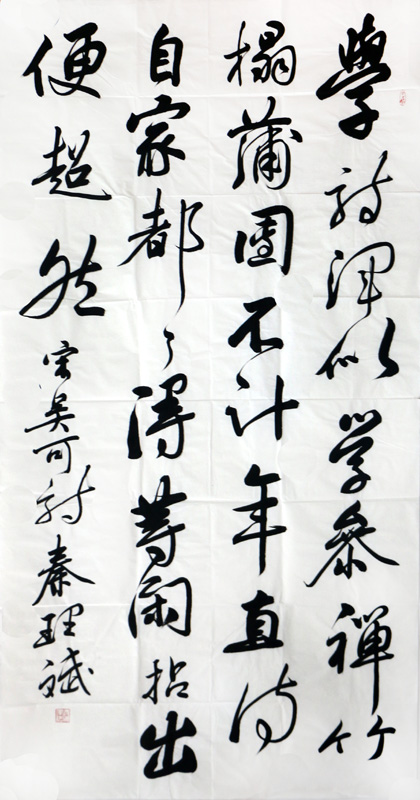 學詩渾似學參禪竹
榻蒲團不計年直待
自家都了得等閑拈出
便超然宋吴可詩秦理斌